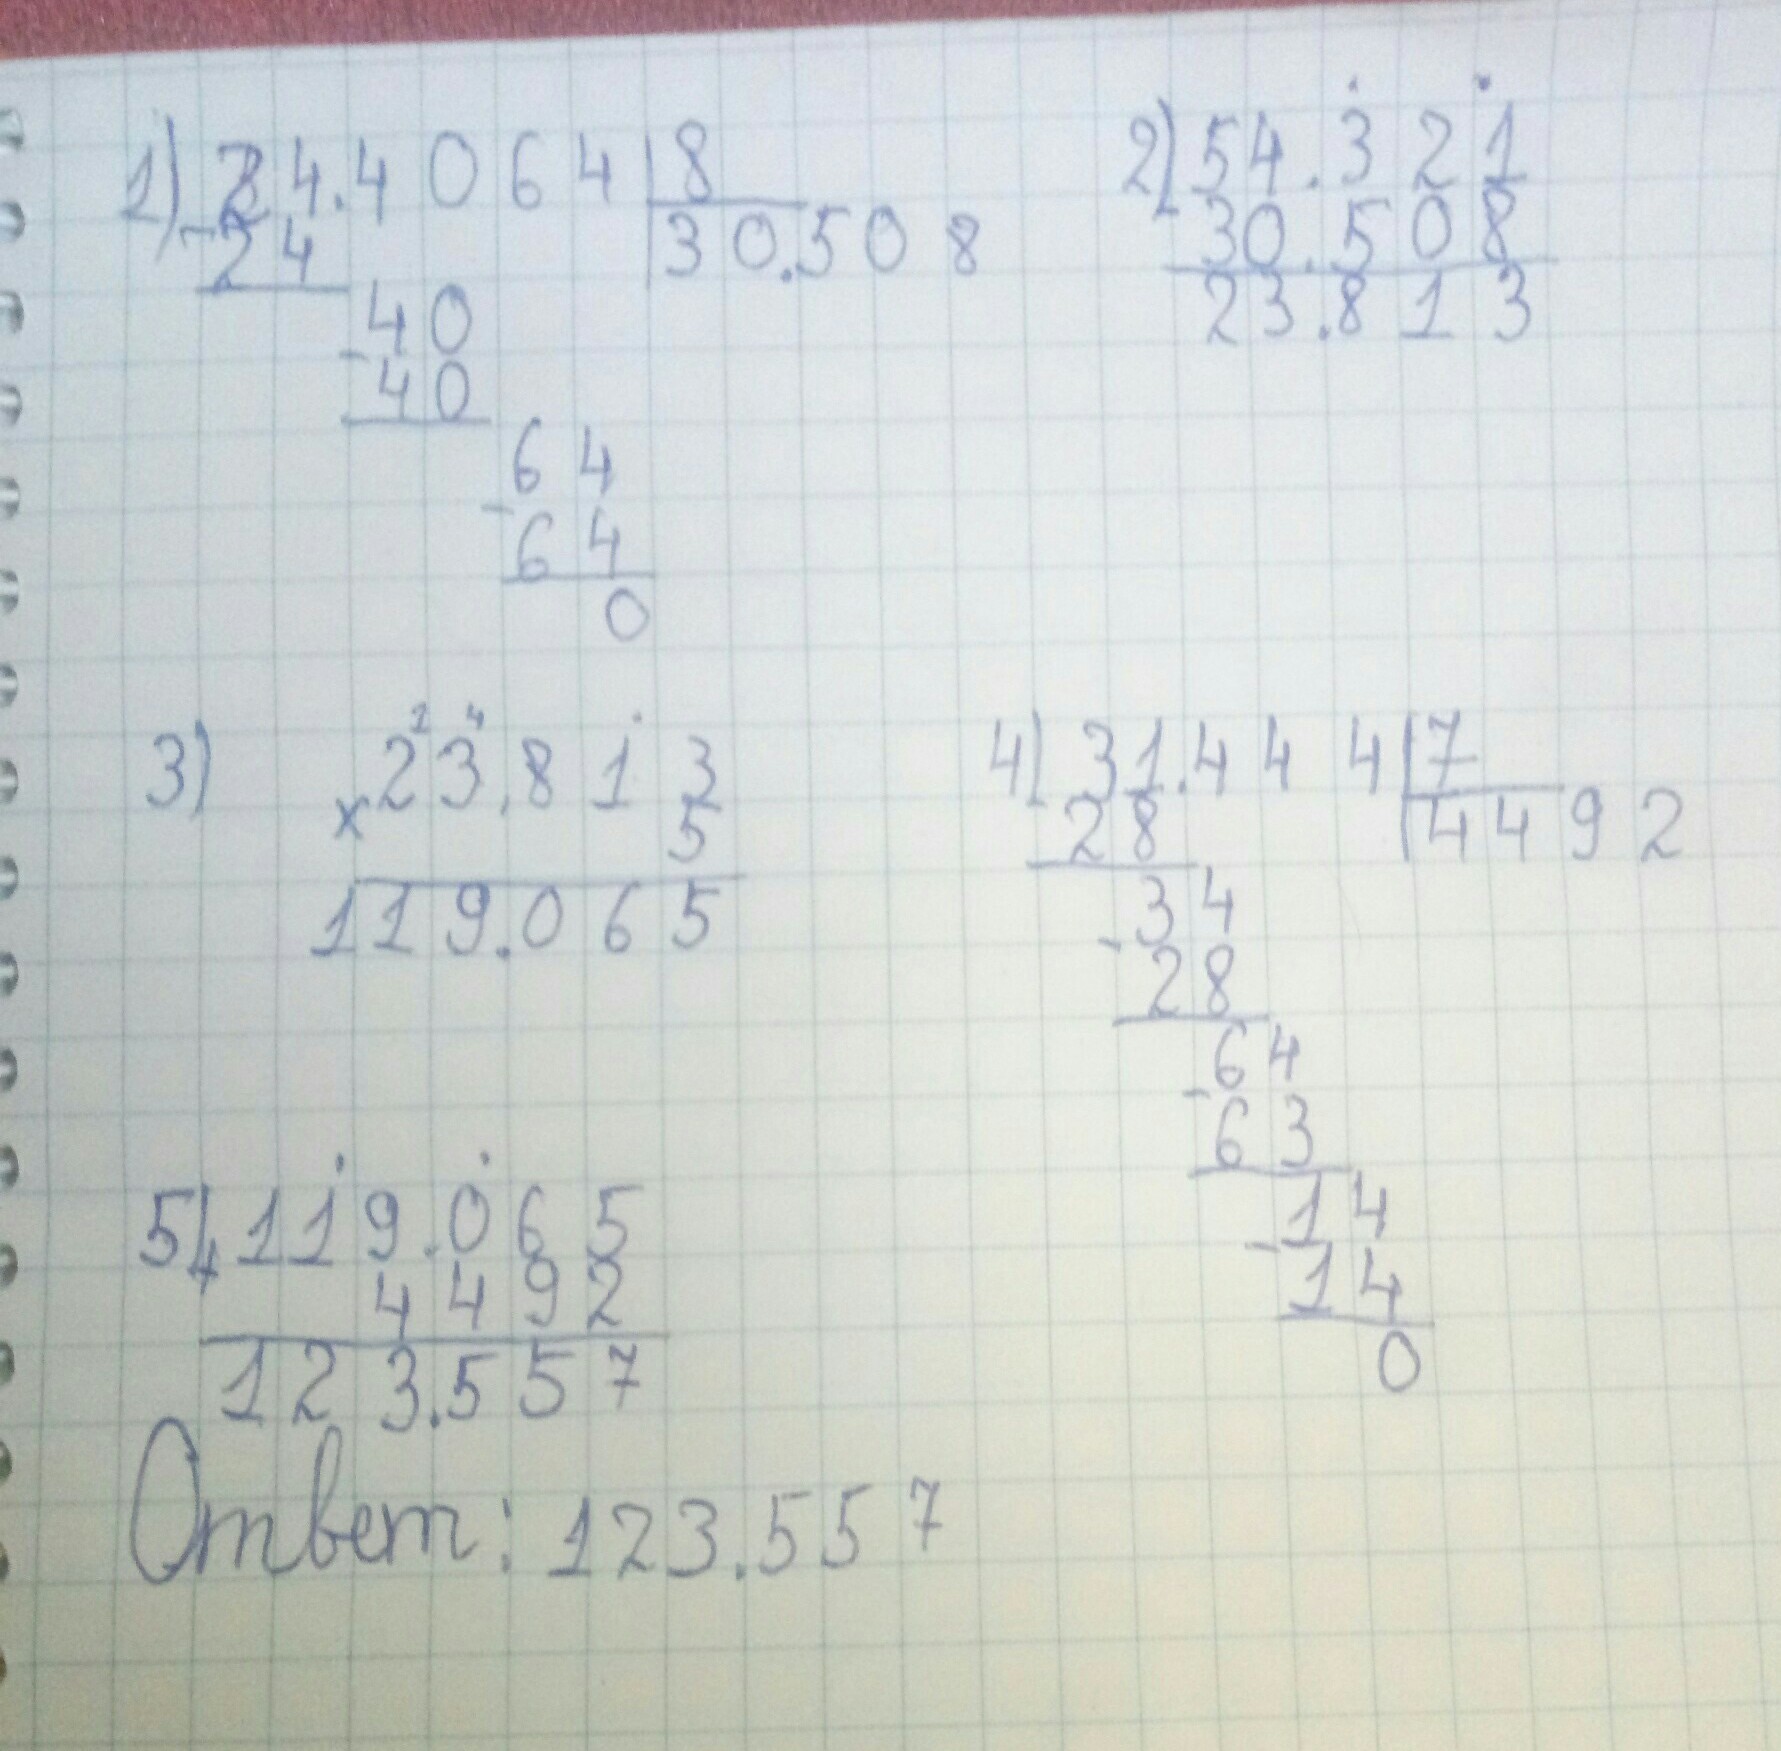 1) 24.4064 8
- 24 30.508
40
- 40
64
- 64
0
2) 54.321
30.508
23.813
3) 2 4
23.813
x 5
119.065
4) 31.444 7
28 4492
34
- 28
64
- 63
14
- 14
0
5) 119.065
+ 4492
123.557
Ответ: 123.557